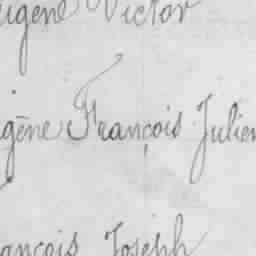 ugene Victor
gène François Julien
ançois Joseph